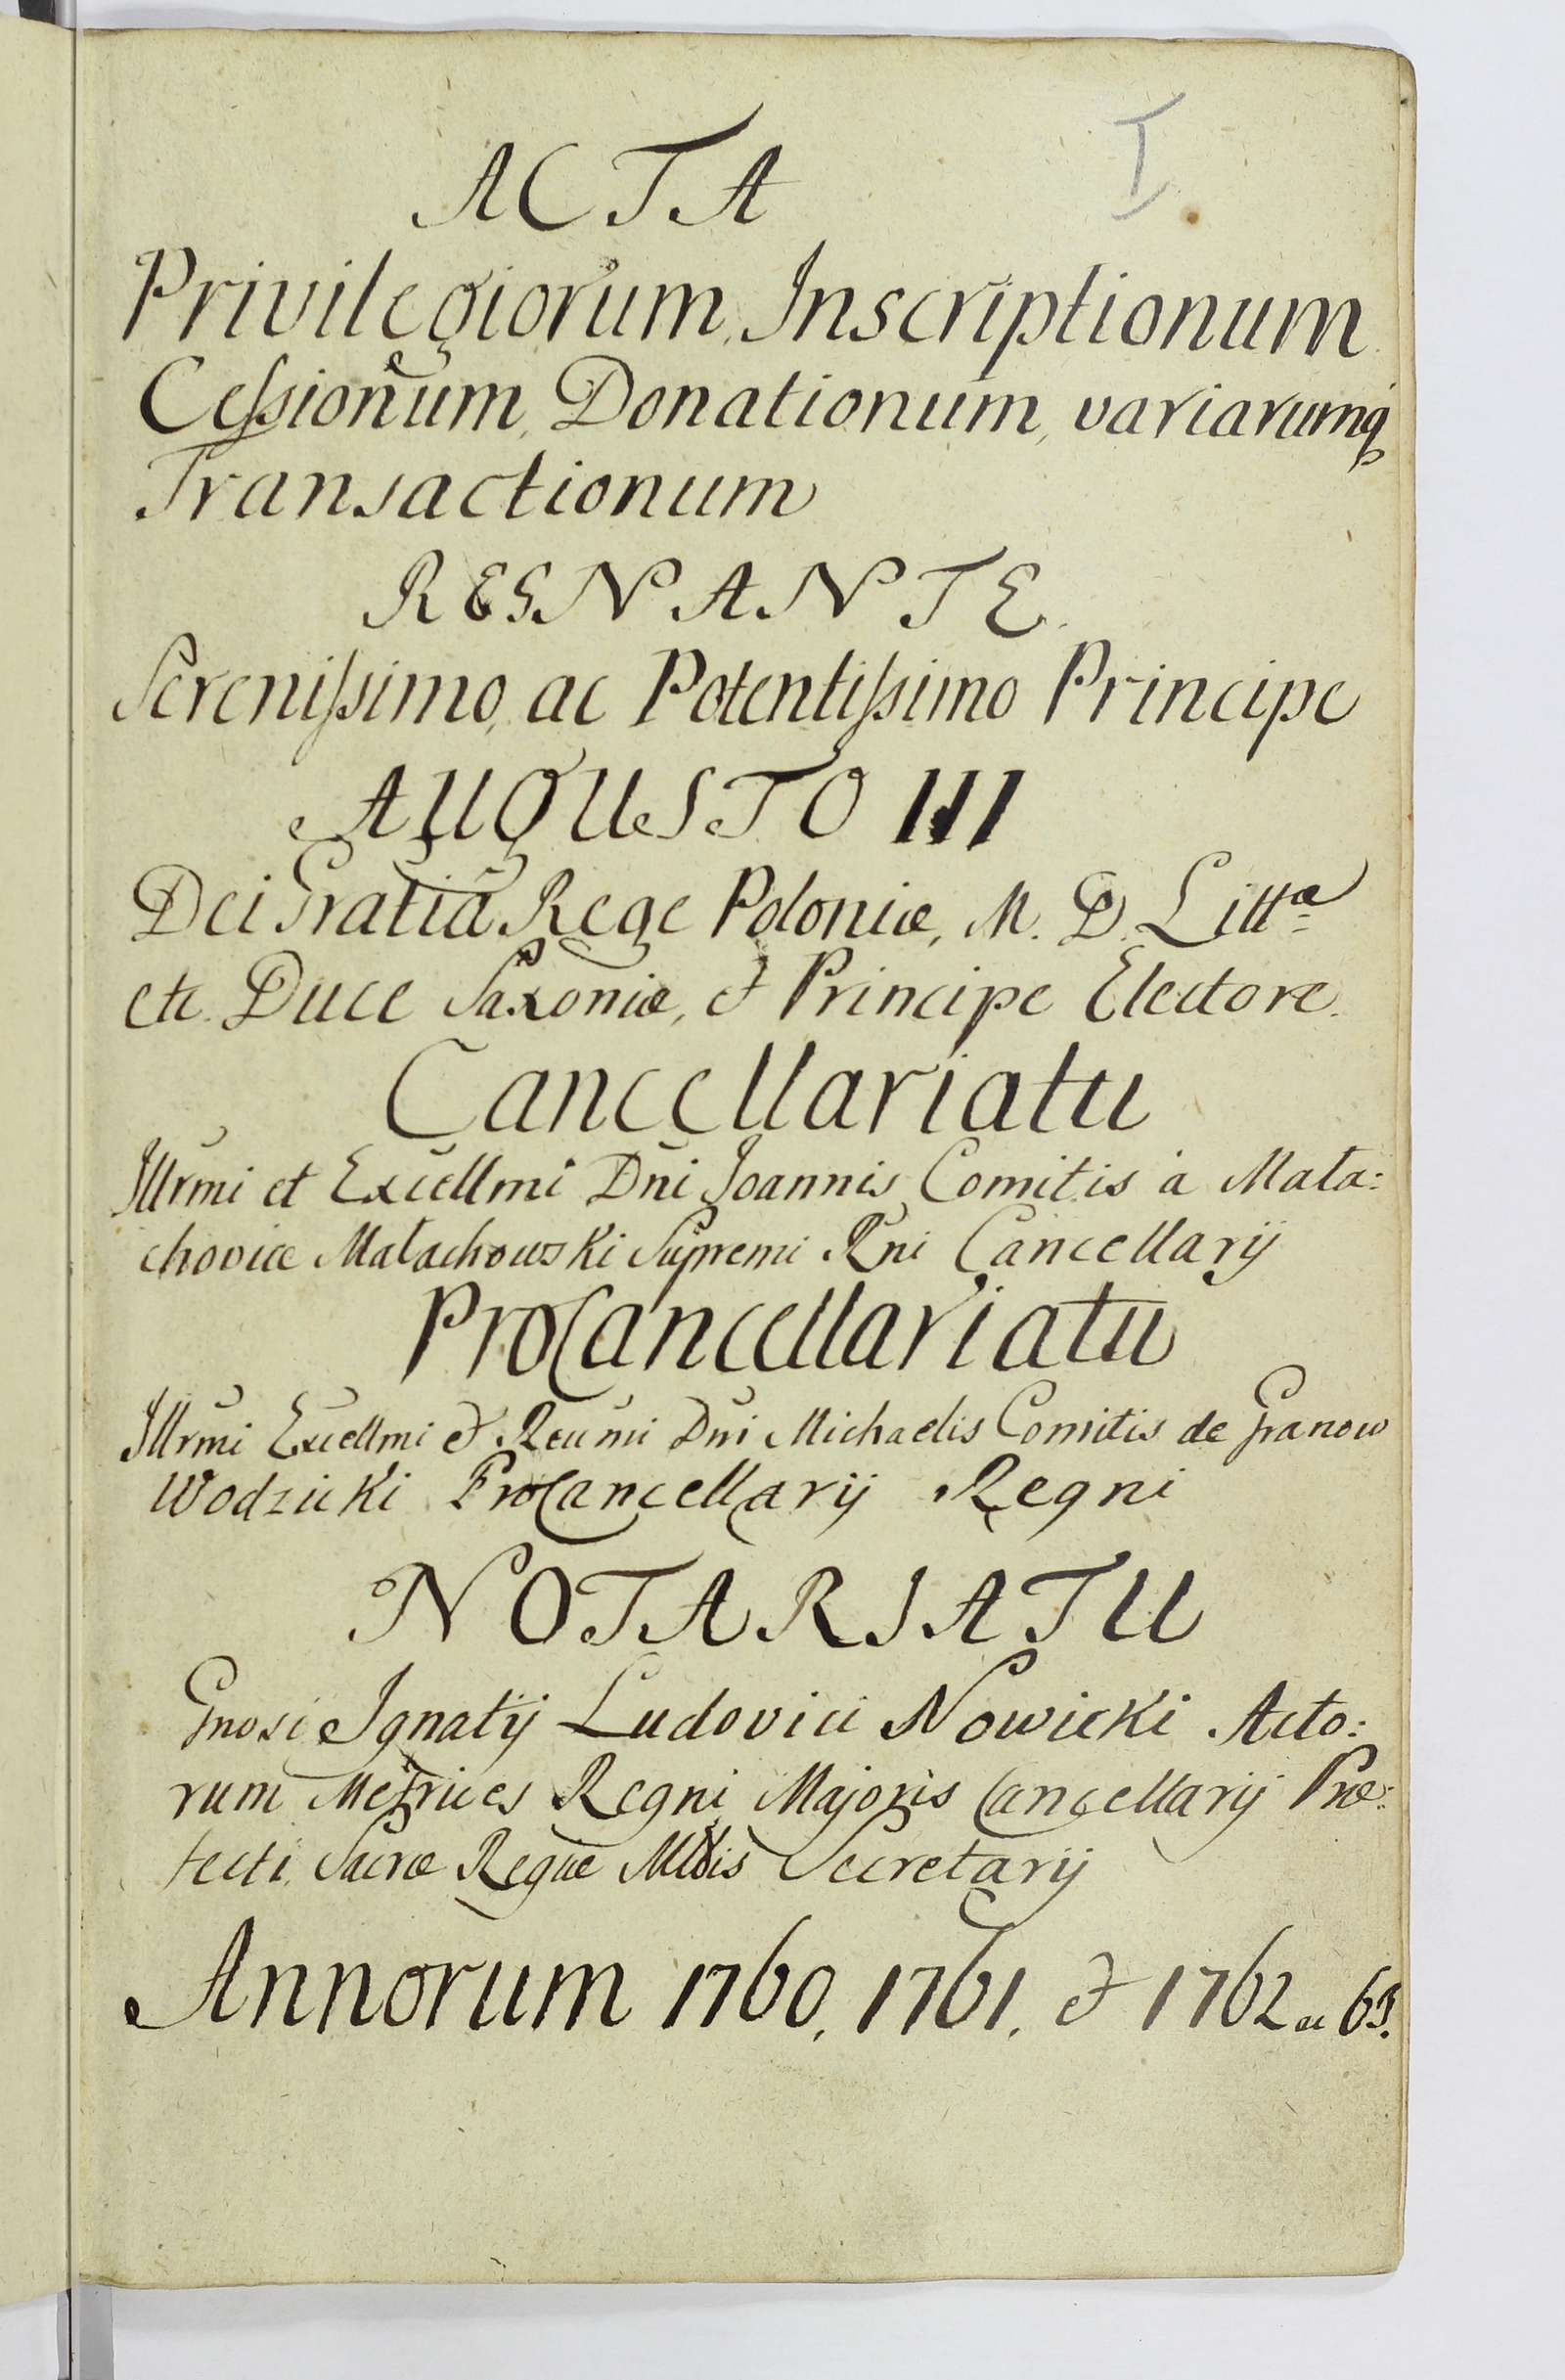 I
ACTA
Privilegiorum, Inscriptionum
Cessionum, Donationum, variarumq
Transactionum
REGNANTE
Serenissimo, ac Potentissimo Principe
AUGUSTO III
Dei Gratiâ Rege Poloniæ, M. D. Littæ
etc. Duce Saxoniæ, et Principe Electore.
Cancellariatu
Illrmi et Excellmi Dni Joannis Comitis à Mała:
chovice Małachowski Supremi Rni Cancellarij
ProCancellariatu
Illrmi Excellmi et Reumi Dni Michaelis Comitis de Granow
Wodzicki ProCancellarij Regni
NOTARIATU
Gnosi Ignatij Ludovici Nowicki Acto:
rum Metrices Regni Majoris Cancellarij Præ:
fecti, Sacræ Regiæ Mttis Secretarij
Annorum 1760, 1761, et 1762 et 63.